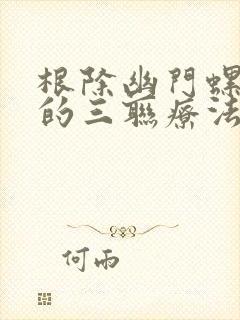 根除幽門螺
的三聯療法
何雨